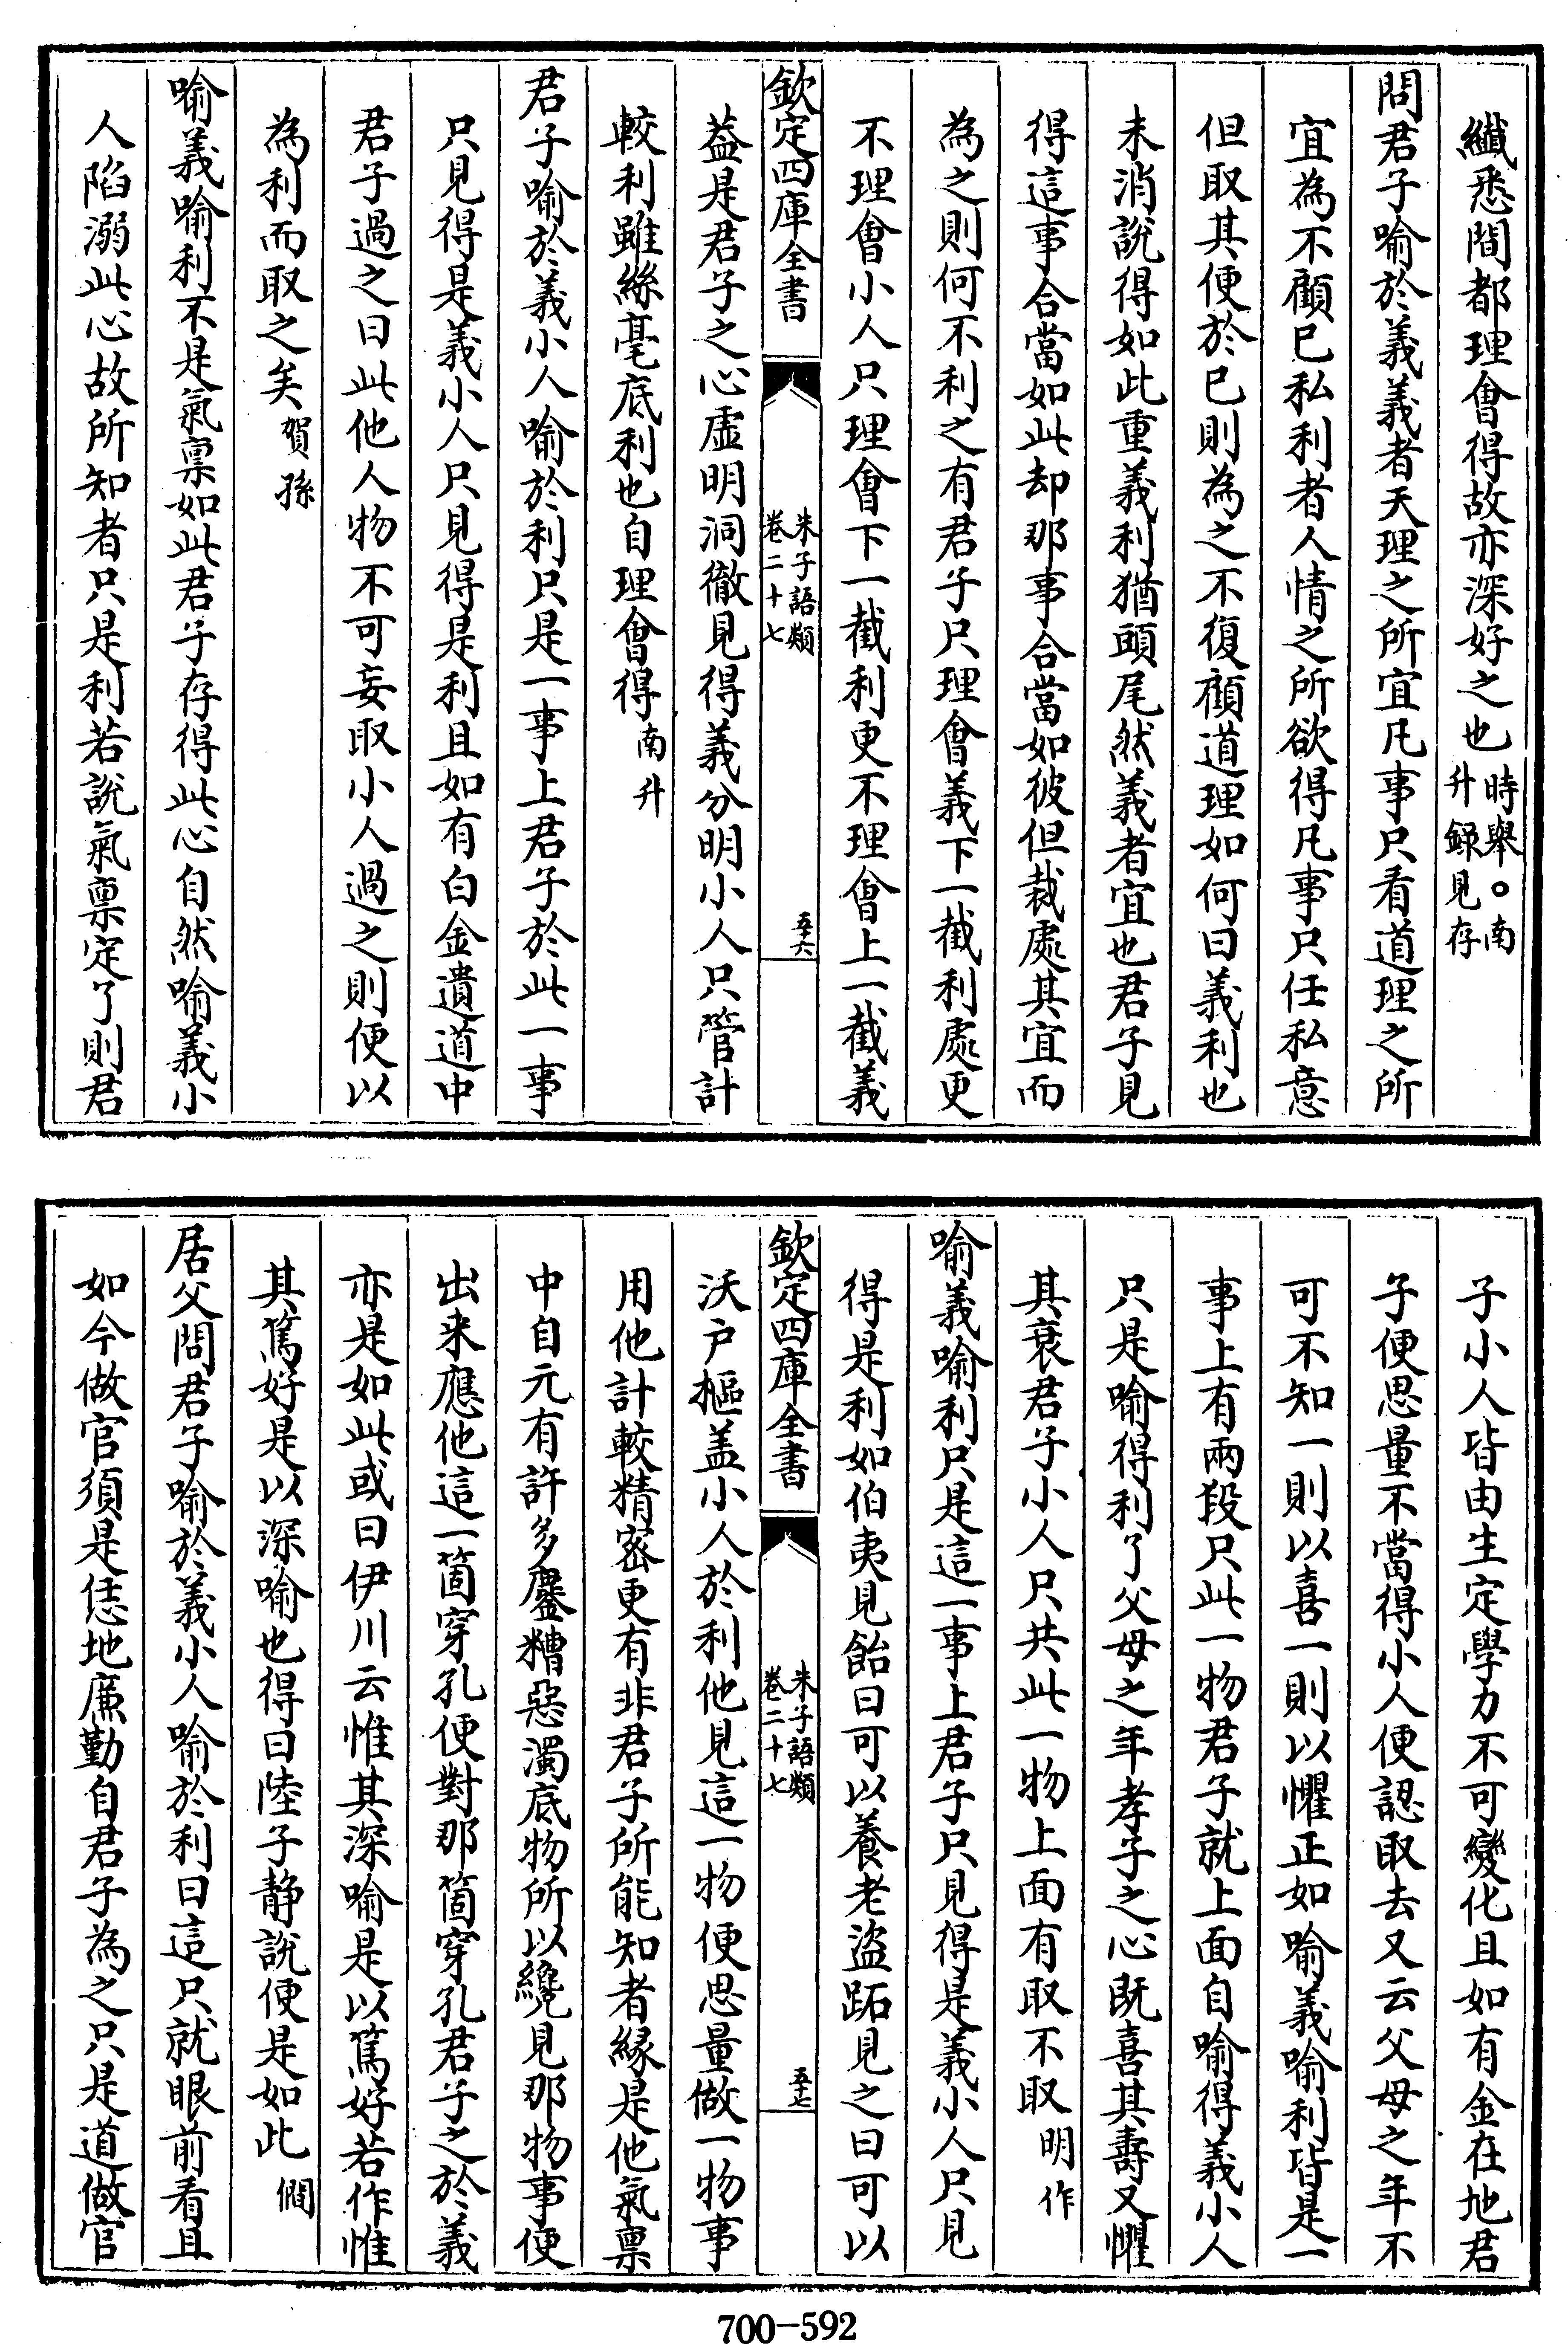 纎悉間都理會得故亦深好之也時舉○南
升録見存
問君子喻於義義者天理之所宜凡事只看道理之所
宜為不顧已私利者人情之所欲得凡事只任私意
但取其便於已則為之不復顧道理如何曰義利也
未消說得如此重義利猶頭尾然義者宜也君子見
得這事合當如此却那事合當如彼但裁處其宜而
為之則何不利之有君子只理會義下一截利處更
不理會小人只理會下一截利更不理會上一截義
欽定四庫全書
朱子語類
卷二十七
五十六
葢是君子之心虛明洞徹見得義分明小人只管計
較利雖絲毫底利也自理會得南升
君子喻於義小人喻於利只是一事上君子於此一事
只見得是義小人只見得是利且如有白金遺道中
君子過之曰此他人物不可妄取小人過之則便以
為利而取之矣賀孫
喻義喻利不是氣禀如此君子存得此心自然喻義小
人陷溺此心故所知者只是利若說氣禀定了則君
子小人皆由生定學力不可變化且如有金在地君
子便思量不當得小人便認取去又云父母之年不
可不知一則以喜一則以懼正如喻義喻利皆是一
事上有兩段只此一物君子就上面自喻得義小人
只是喻得利了父母之年孝子之心既喜其壽又懼
其衰君子小人只共此一物上面有取不取明作
喻義喻利只是這一事上君子只見得是義小人只見
得是利如伯夷見飴曰可以養老盜跖見之曰可以
欽定四庫全書
朱子語類
卷二十七
五十七
沃户樞盖小人於利他見這一物便思量做一物事
用他計較精宻更有非君子所能知者緣是他氣禀
中自元有許多鏖糟惡濁底物所以纔見那物事便
出来應他這一箇穿孔便對那箇穿孔君子之於義
亦是如此或曰伊川云惟其深喻是以篤好若作惟
其篤好是以深喻也得曰陸子静說便是如此僩
居父問君子喻於義小人喻於利曰這只就眼前看且
如今做官須是恁地廉勤自君子為之只是道做官
700-592